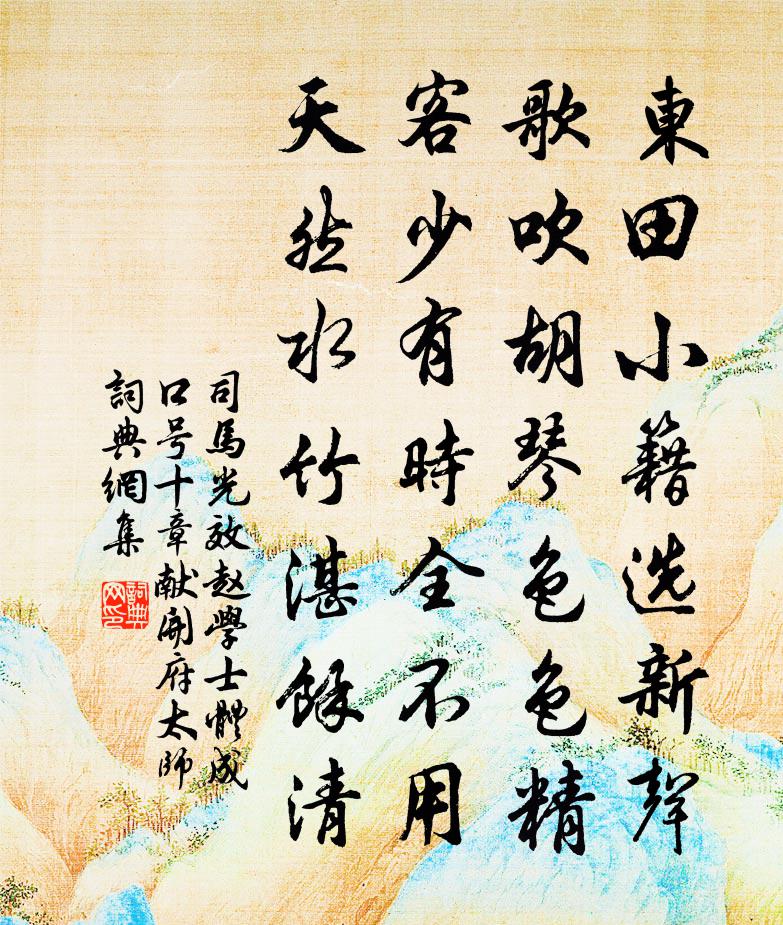 東田小籍选新聲
歌吹胡琴色色精
客少有時全不用
天然水竹湛餘清
司馬光效赵學士體成
口号十章献開府太师
詞典網集
詞典
网印